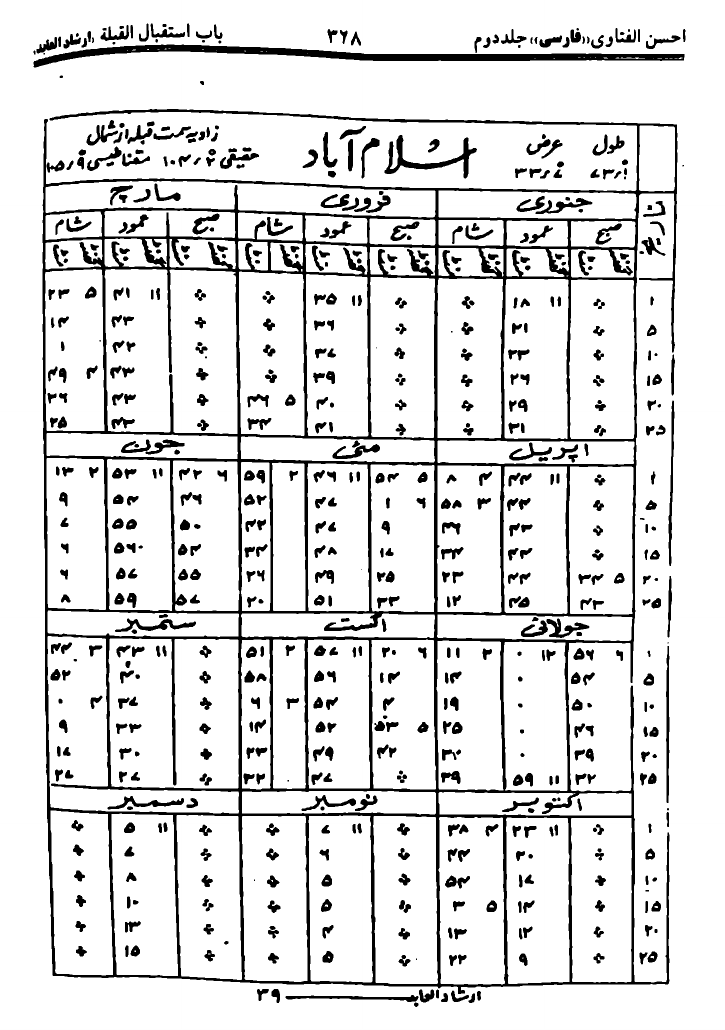 احسن الفتاوی ((فارسی)) جلد دوم ۳۶۸ باب استقبال القبلة (ارشاد العابد)
طول عرض اسلام آباد زاویہ سمت قبلہ از شمال
۷۳/۱ ۳۳/۷ حقیقی ۱۰۴/۲ مقناطیسی ۱۰۵/۹
تاریخ جنوری فروری مارچ
صبح عمود شام صبح عمود شام صبح عمود شام
۱ ※ ۱۱ ۱۸ ※ ※ ۱۱ ۳۵ ※ ※ ۱۱ ۴۱ ۵ ۲۳
۵ ※ ۲۱ ※ ※ ۳۶ ※ ※ ۴۳ ۱۴
۱۰ ※ ۲۳ ※ ※ ۳۷ ※ ※ ۴۲ ۱
۱۵ ※ ۲۶ ※ ※ ۳۹ ※ ※ ۴۳ ۴ ۴۹
۲۰ ※ ۲۹ ※ ※ ۴۰ ۵ ۴۶ ※ ۴۳ ۳۶
۲۵ ※ ۳۱ ※ ※ ۴۱ ۳۴ ※ ۴۳ ۲۵
اپریل مئی جون
۱ ※ ۱۱ ۴۴ ۴ ۸ ۵ ۵۴ ۱۱ ۴۶ ۲ ۵۹ ۶ ۴۲ ۱۱ ۵۳ ۲ ۱۳
۵ ※ ۴۴ ۳ ۵۸ ۶ ۱ ۴۷ ۵۲ ۴۶ ۵۴ ۹
۱۰ ※ ۴۳ ۴۶ ۹ ۴۷ ۴۲ ۵۰ ۵۵ ۷
۱۵ ※ ۴۴ ۳۴ ۱۷ ۴۸ ۳۴ ۵۴ ۵۶ ۶
۲۰ ۵ ۳۴ ۴۴ ۲۳ ۲۵ ۴۹ ۲۶ ۵۵ ۵۷ ۶
۲۵ ۴۳ ۴۵ ۱۲ ۳۳ ۵۱ ۲۰ ۵۷ ۵۹ ۸
جولائی اگست ستمبر
۱ ۶ ۵۶ ۱۲ ۰ ۲ ۱۱ ۶ ۲۰ ۱۱ ۵۷ ۲ ۵۱ ※ ۱۱ ۴۳ ۳ ۴۴
۵ ۵۴ ۰ ۱۴ ۱۴ ۵۶ ۵۸ ※ ۴۰ ۵۲
۱۰ ۵۰ ۰ ۱۹ ۴ ۵۴ ۳ ۶ ※ ۳۷ ۴ ۰
۱۵ ۴۶ ۰ ۲۵ ۵ ۵۳ ۵۲ ۱۴ ※ ۳۳ ۹
۲۰ ۳۹ ۰ ۳۲ ۴۲ ۴۹ ۲۳ ※ ۳۰ ۱۷
۲۵ ۳۲ ۱۱ ۵۹ ۳۹ ※ ۴۷ ۳۲ ※ ۲۷ ۲۷
اکتوبر نومبر دسمبر
۱ ※ ۱۱ ۲۳ ۴ ۳۸ ※ ۱۱ ۷ ※ ※ ۱۱ ۵ ※
۵ ※ ۲۰ ۴۴ ※ ۶ ※ ※ ۷ ※
۱۰ ※ ۱۷ ۵۴ ※ ۵ ※ ※ ۸ ※
۱۵ ※ ۱۴ ۵ ۳ ※ ۵ ※ ※ ۱۰ ※
۲۰ ※ ۱۲ ۱۳ ※ ۴ ※ ※ ۱۳ ※
۲۵ ※ ۹ ۲۲ ※ ۵ ※ ※ ۱۵ ※
ارشاد العابد ۳۹